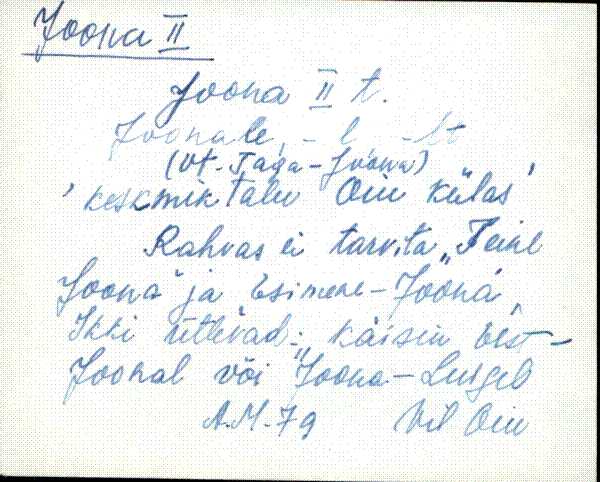 Joona II
Joona II t.
Joonale, -l -lt
(Vt. Taga-Joona)
'keskmik talu Oiu külas'
Rahvas ei tarvita „Teine
Joona" ja Esimene-Joona",
Ikki ütlevad: käisin Eest-
Joonal või "Joona-
A.M. 79 Vil Oiu